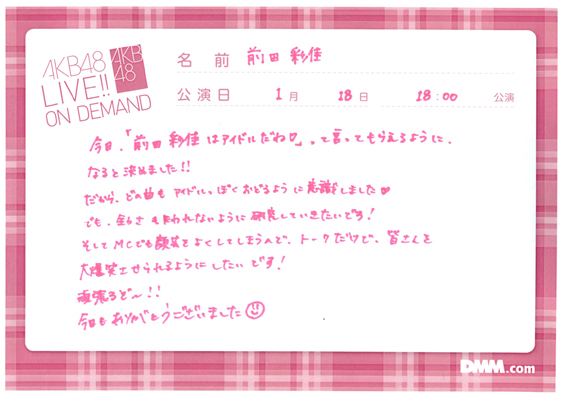 AKB48
LIVE!!
ON DEMAND
AKB
48
名 前 前田 彩佳
公演日 1月 18日 18:00 公演
今日、「前田 彩佳 はアイドルだね♡」って言ってもらえるように、
なると決めました!!
だから、どの曲も アイドルっぽく おどるように 意識しました♡
でも、 さ も失われないように 研究していきたいです!
そして MCでも 顔芸を よくしてしまうんで、トークだけで、皆さんを
大爆笑させられるように したい です!
頑張るぞ〜!!
今日も ありがとうございました☺
DMM.com